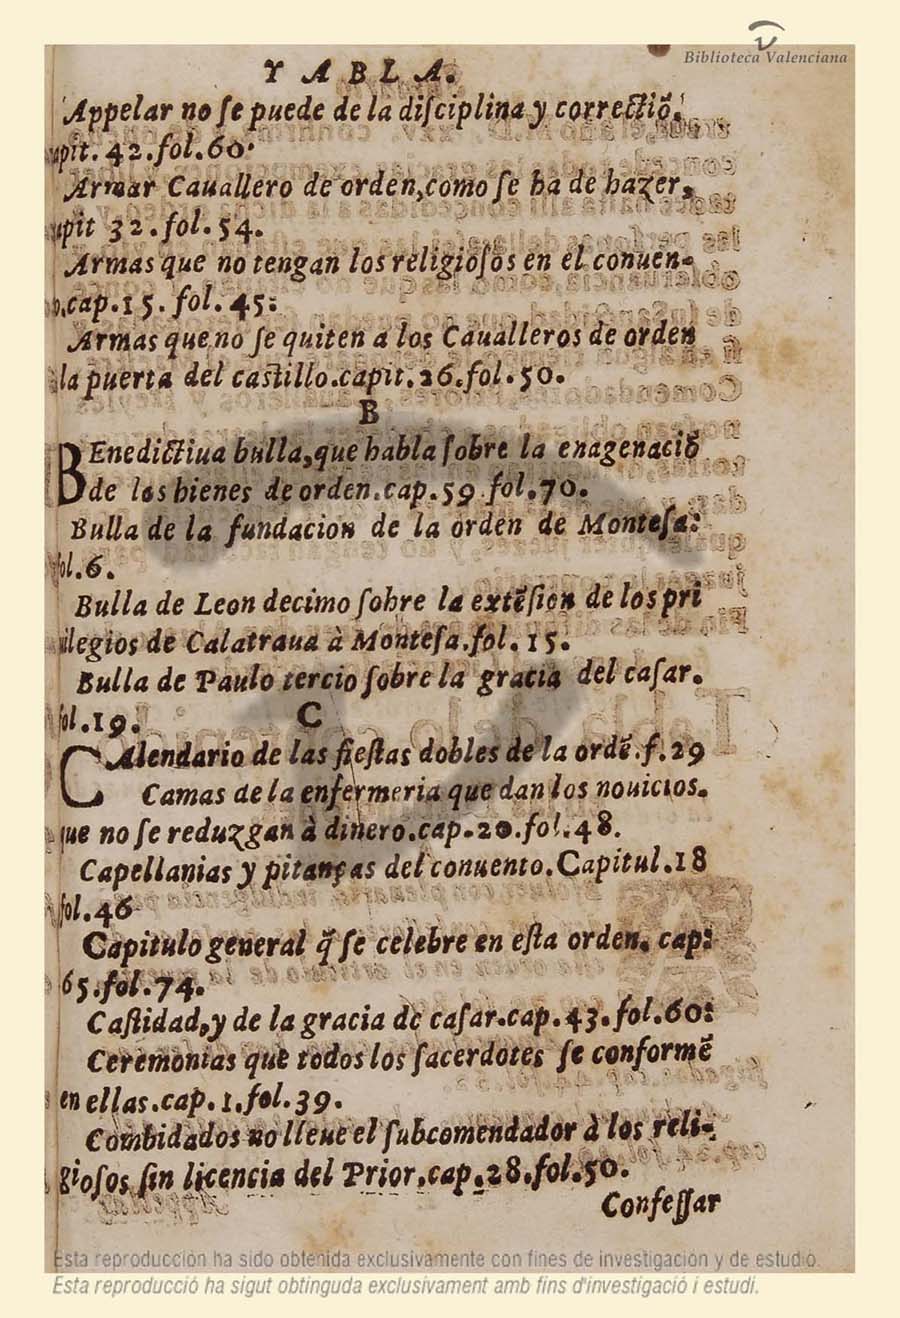 Biblioteca Valenciana
Y A B L A.
Appelar no ſe puede de la diſciplina y correctiõ.
apit. 42. fol. 60.
Armar Cauallero de orden, como ſe ha de hazer,
apit 32. fol. 54.
Armas que no tengan los religioſos en el conuen-
o, cap. 15. fol. 45:
Armas que no ſe quiten a los Caualleros de orden
la puerta del castillo. capit. 26. fol. 50.
B
BEnedictiua bulla, que habla ſobre la enagenaciõ
de los bienes de orden. cap. 59. fol. 70.
Bulla de la fundacion de la orden de Monteſa:
fol. 6.
Bulla de Leon decimo ſobre la extẽſion de los pri
uilegios de Calatraua à Monteſa. fol. 15.
Bulla de Paulo tercio ſobre la gracia del caſar.
fol. 19.
C
CAlendario de las fieſtas dobles de la ordẽ. f. 29
Camas de la enfermeria que dan los nouicios.
que no ſe reduzgan à dinero. cap. 20. fol. 48.
Capellanias y pitanças del conuento. Capitul. 18
fol. 46
Capitulo general q̃ ſe celebre en eſta orden, cap:
65. fol. 74.
Caſtidad, y de la gracia de caſar. cap. 43. fol. 60:
Ceremonias que todos los ſacerdotes ſe conformẽ
en ellas. cap. 1. fol. 39.
Combidados no lleue el ſubcomendador à los reli-
gioſos ſin licencia del Prior, cap. 28. fol. 50.
Confeſſar
Esta reproducción ha sido obtenida exclusivamente con fines de investigación y de estudio.
Esta reproducció ha sigut obtinguda exclusivament amb fins d'investigació i estudi.